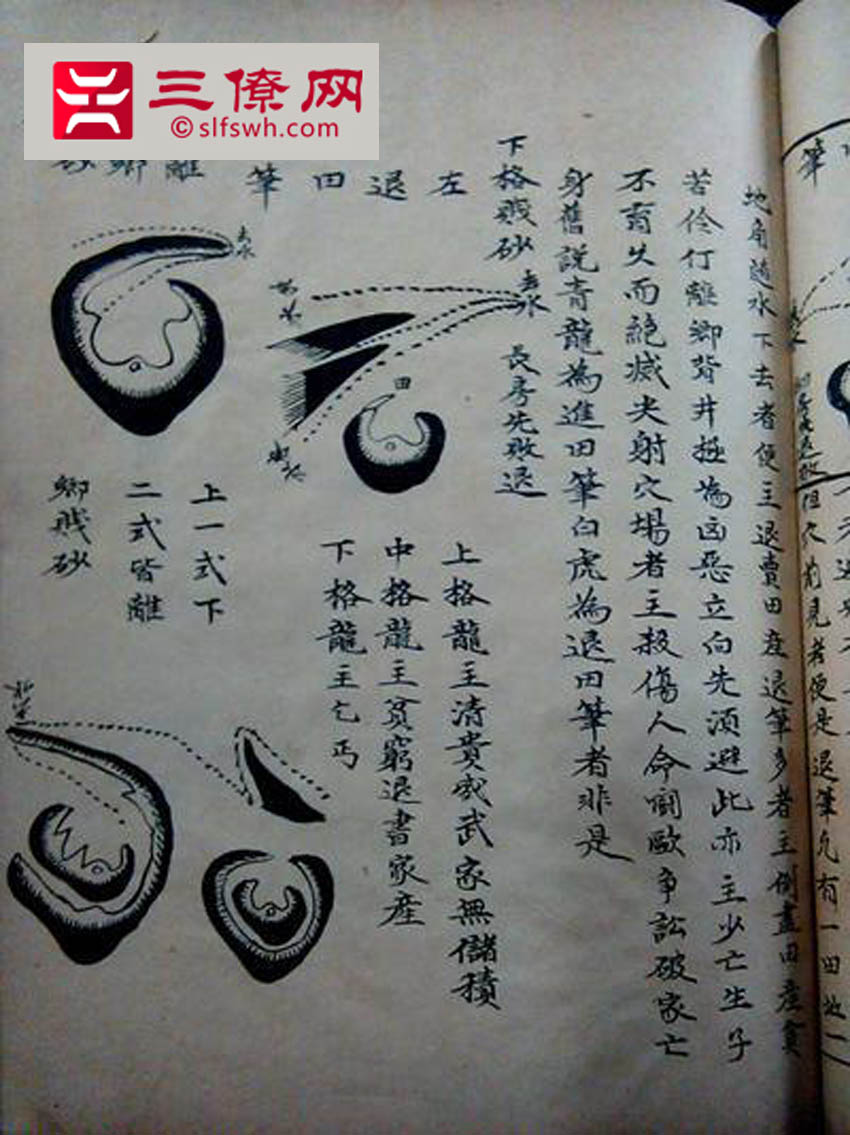 三僚网
©slfswh.com
地角随水下去者便主退賣田産退筆多者主倒盡田産貧
若伶仃離鄉背井極為凶惡立向先須避此亦主少亡生子
不育久而絕滅尖射穴場者主殺傷人命鬪毆爭訟破家亡
身舊說青龍為進田筆白虎為退田筆者非是
下格賎砂
長房先敗退
左退田筆
去水
田
上格龍主清貴或武家無儲積
中格龍主貧窮退書家産
下格龍主乞丐
離鄉
去水
上一式下
二式皆離
鄉賎砂
但穴前見者便是退筆凢有一田地一
筆